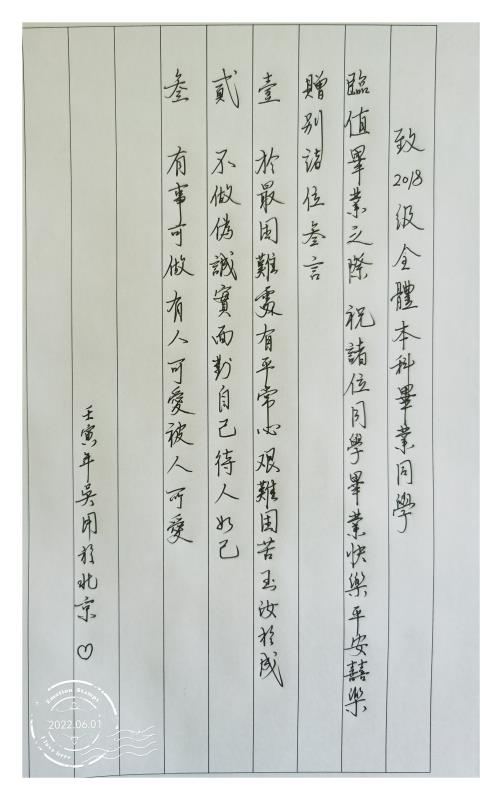 致2018級全體本科畢業同學
臨值畢業之際 祝諸位同學畢業快樂平安囍樂
贈別諸位叁言
壹 於最困難處有平常心艱難困苦玉汝於成
貳 不做偽誠實面對自己待人如己
叁 有事可做有人可愛被人可愛
壬寅年吳用於北京♡
Emotion Stamps
2022.06.01
I love here